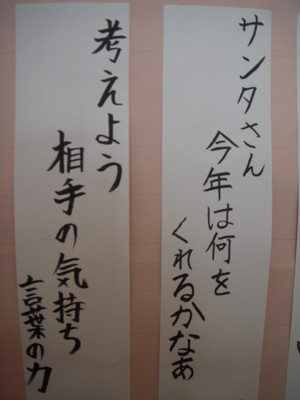 サンタさん
今年は何を
くれるかなぁ
考えよう
相手の気持ち
言葉の力